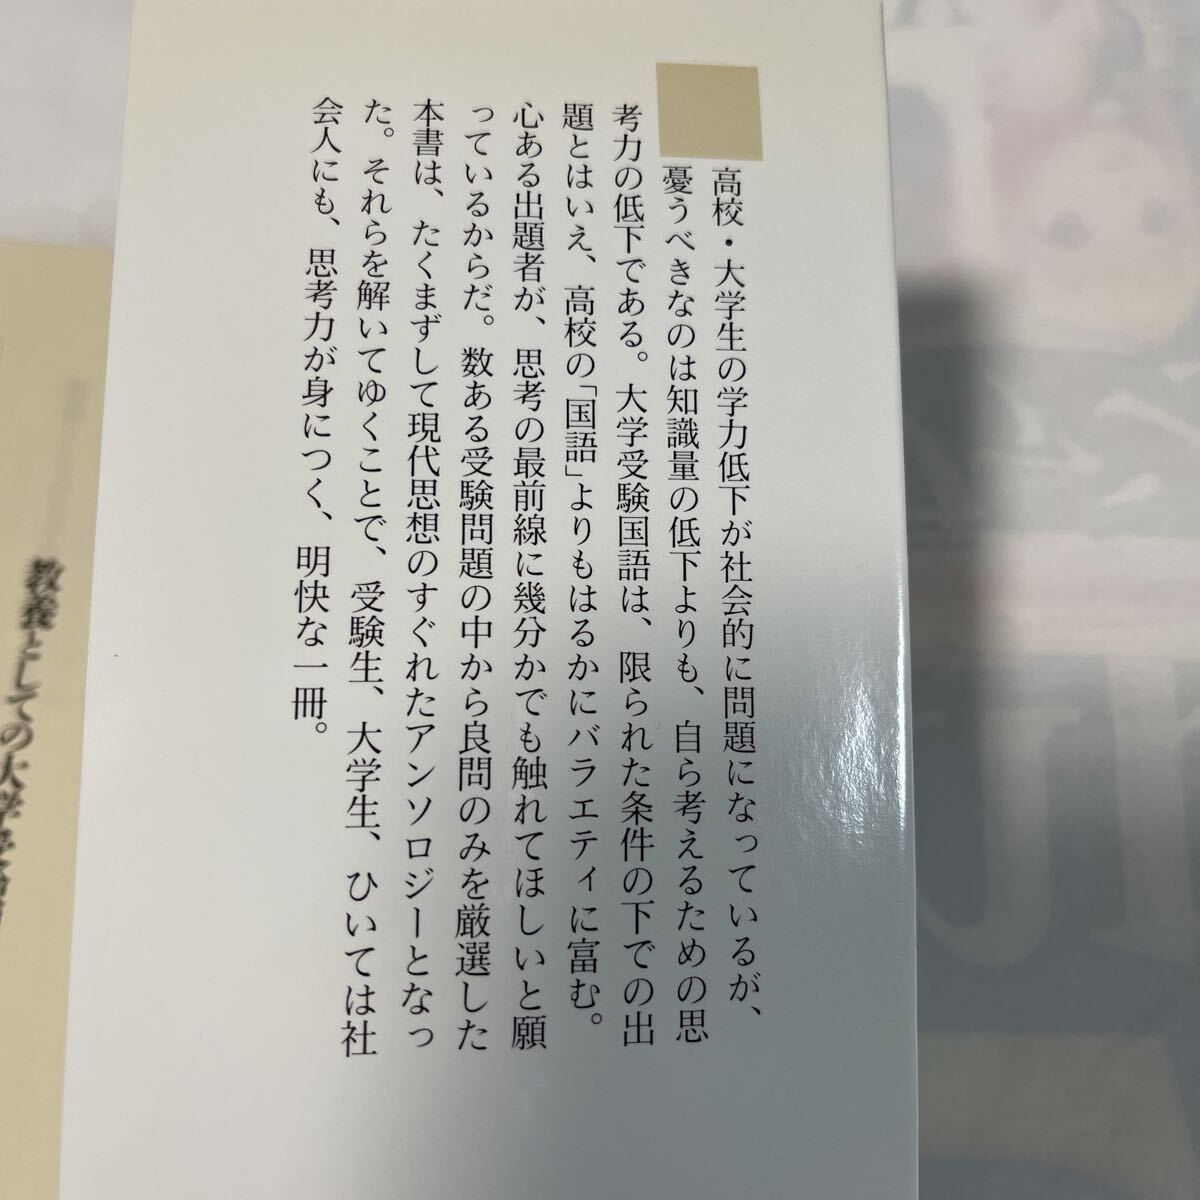 高校・大学生の学力低下が社会的に問題になっているが、
憂うべきなのは知識量の低下よりも、自ら考えるための思
考力の低下である。大学受験国語は、限られた条件の下での出
題とはいえ、高校の「国語」よりもはるかにバラエティに富む。
心ある出題者が、思考の最前線に幾分かでも触れてほしいと願
っているからだ。数ある受験問題の中から良問のみを厳選した
本書は、たくまずして現代思想のすぐれたアンソロジーとなっ
た。それらを解いてゆくことで、受験生、大学生、ひいては社
会人にも、思考力が身につく、明快な一冊。
教養としての大学受